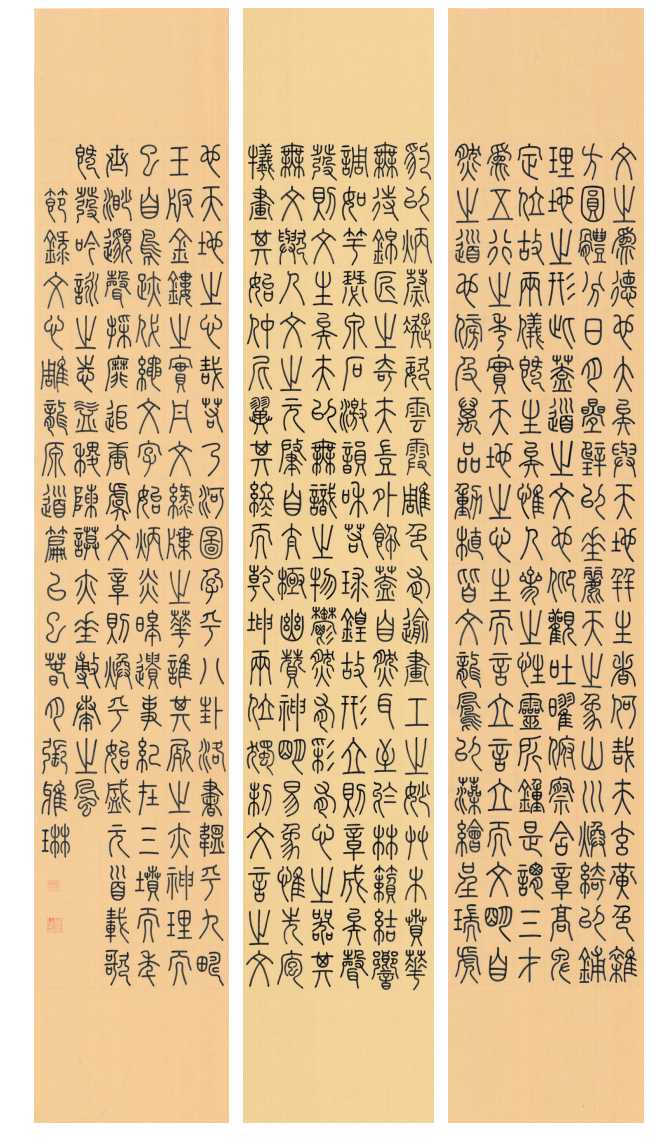 文之為德也大矣與天地並生者何哉夫玄黃色雜
方圓體分日月疊璧以垂麗天之象山川煥綺以鋪
理地之形此蓋道之文也仰觀吐曜俯察含章高卑
定位故兩儀既生矣惟人參之性靈所鍾是謂三才
為五行之秀實天地之心生而言立言立而文明自
然之道也傍及萬品動植皆文龍鳳以藻繪呈瑞虎
豹以炳蔚凝姿雲霞雕色有逾畫工之妙草木賁華
無待錦匠之奇夫豈外飾蓋自然耳至於林籟結響
調如竽瑟泉石激韻和若球鍠故形立則章成矣聲
發則文生矣夫以無識之物鬱然有彩有心之器其
無文歟人文之元肇自太極幽贊神明易象惟先庖
犧畫其始仲尼翼其終而乾坤兩位獨制文言之文
也天地之心哉若乃河圖孕乎八卦洛書韞乎九疇
玉版金鏤之實丹文綠牒之華誰其尸之亦神理而
已自鳥跡代繩文字始炳炎皞遺事紀在三墳而年
世渺邈聲採靡追唐虞文章則煥乎始盛元首載歌
既發吟詠之志益稷陳謨亦垂敷奏之風
節錄文心雕龍原道篇乙巳春月張雅琳